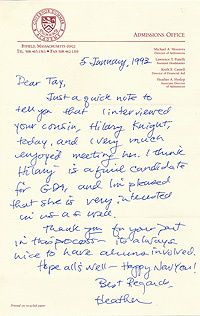 ADMISSIONS OFFICE
BYFIELD, MASSACHUSETTS 01922
Michael A.
Director of Admission
Lawrence T. Piatelli
Keith E. Cassell
Director of Financial Aid
Heather A.
Director of Admission
5 January, 1992
Dear Tay,
Just a quick note to
tell you that I interviewed
your cousin, Hilary Knight,
today, and I very much
enjoyed meeting her. I think
Hilary is a fine candidate
for GDA, and I'm pleased
that she is very interested
in us as well.
Thank you for your part
in this process — its always
nice to have alumns involved.
Hope all's well — Happy New Year!
Best Regards,
Heather
Printed on recycled paper